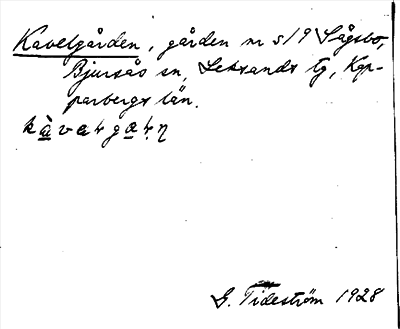 Kavelgården, gården nr 5/9 Sågsbo,
Bjursås sn, Leksands tg, Kop-
parbergs län.
kàvalgaṇ
G. Tideström 1928